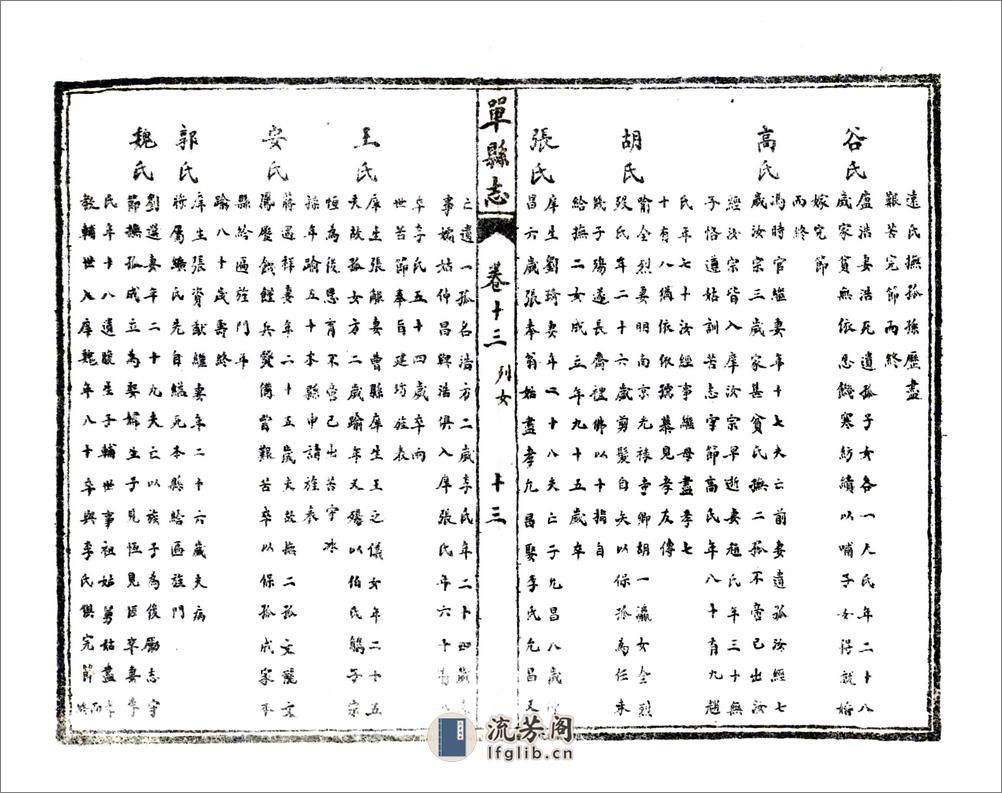 遠氏撫孤孫歷盡
艱苦完節而終
谷氏
盧浩妻浩死遺孤子女各一人氏年二十八
歲家貧無依忍饑寒紡績以哺子女得說婚
嫁完節
而終
高氏
馮時官繼妻年十七夫亡前妻遺孤汝經七
歲汝宗三歲家甚貧氏撫二孤不啻已出汝
經汝宗皆入庠汝宗早逝妻趙氏年三十無
子恪遵姑訓苦志守節高氏年八十有九趙
氏年七十汝經事繼母盡孝七
十有八猶依依孺慕見孝友傳
胡氏
喻全烈妻明南京光祿寺卿胡一瀛女全烈
歿氏年二十六歲剪髮自矢以保孤為任未
幾子殤遂長齋禮佛以十指自
給撫二女成立年九十五歲卒
張氏
庠生劉琦妻年二十八夫亡子九昌八歲
昌六歲張奉翁姑盡孝九昌娶李氏允昌又
單縣志
卷十三
列女
十三
之遺一孤名浩方二歲李氏年二十四歲
事孀姑仲昌與浩俱入庠張氏年六十有八
卒李氏五十四歲卒兩
世苦節奉旨建坊旌表
王氏
庠生張解妻曹縣庠生王之儀女年二十五
夫故孤女方二歲踰年又殤以伯氏鵬子宗
恒為後恩育不啻已出苦守冰
操年踰五十本縣申請旌表
安氏
蔣遇祥妻年二十五歲夫故撫二孤文龍文
鳳歷餓饉兵燹備嘗艱苦卒以保孤成家本
縣給區旌門年
踰八十壽終
郭氏
庠生張資猷繼妻年二十六歲夫病
將屬纊氏先自縊死本縣給區旌門
魏氏
劉選妻年二十九夫亡以族子為後勵志守
節撫孤成立為娶婦生子見恒見臣卒妻李
氏年十八遺腹生子輔世事祖姑舅姑盡孝
教輔世入庠魏年八十卒與李氏俱完節而終
流芳阁
lfglib.cn